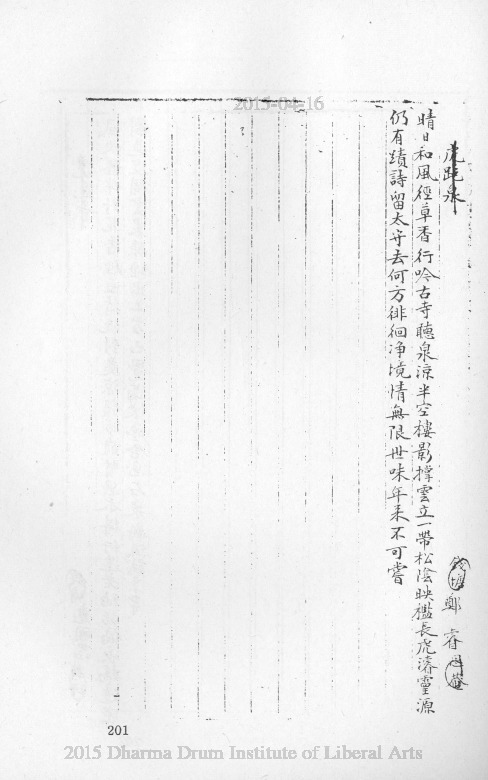 2015-04-16
虎跑泉
錢塘 鄭睿
晴日和風徑草香行吟古寺聽泉涼半空樓影撐雲立一帶松陰映檻長虎濬靈源
仍有蹟詩留太守去何方徘徊淨境情無限世味年來不可嘗
201
2015 Dharma Drum Institute of Liberal Arts